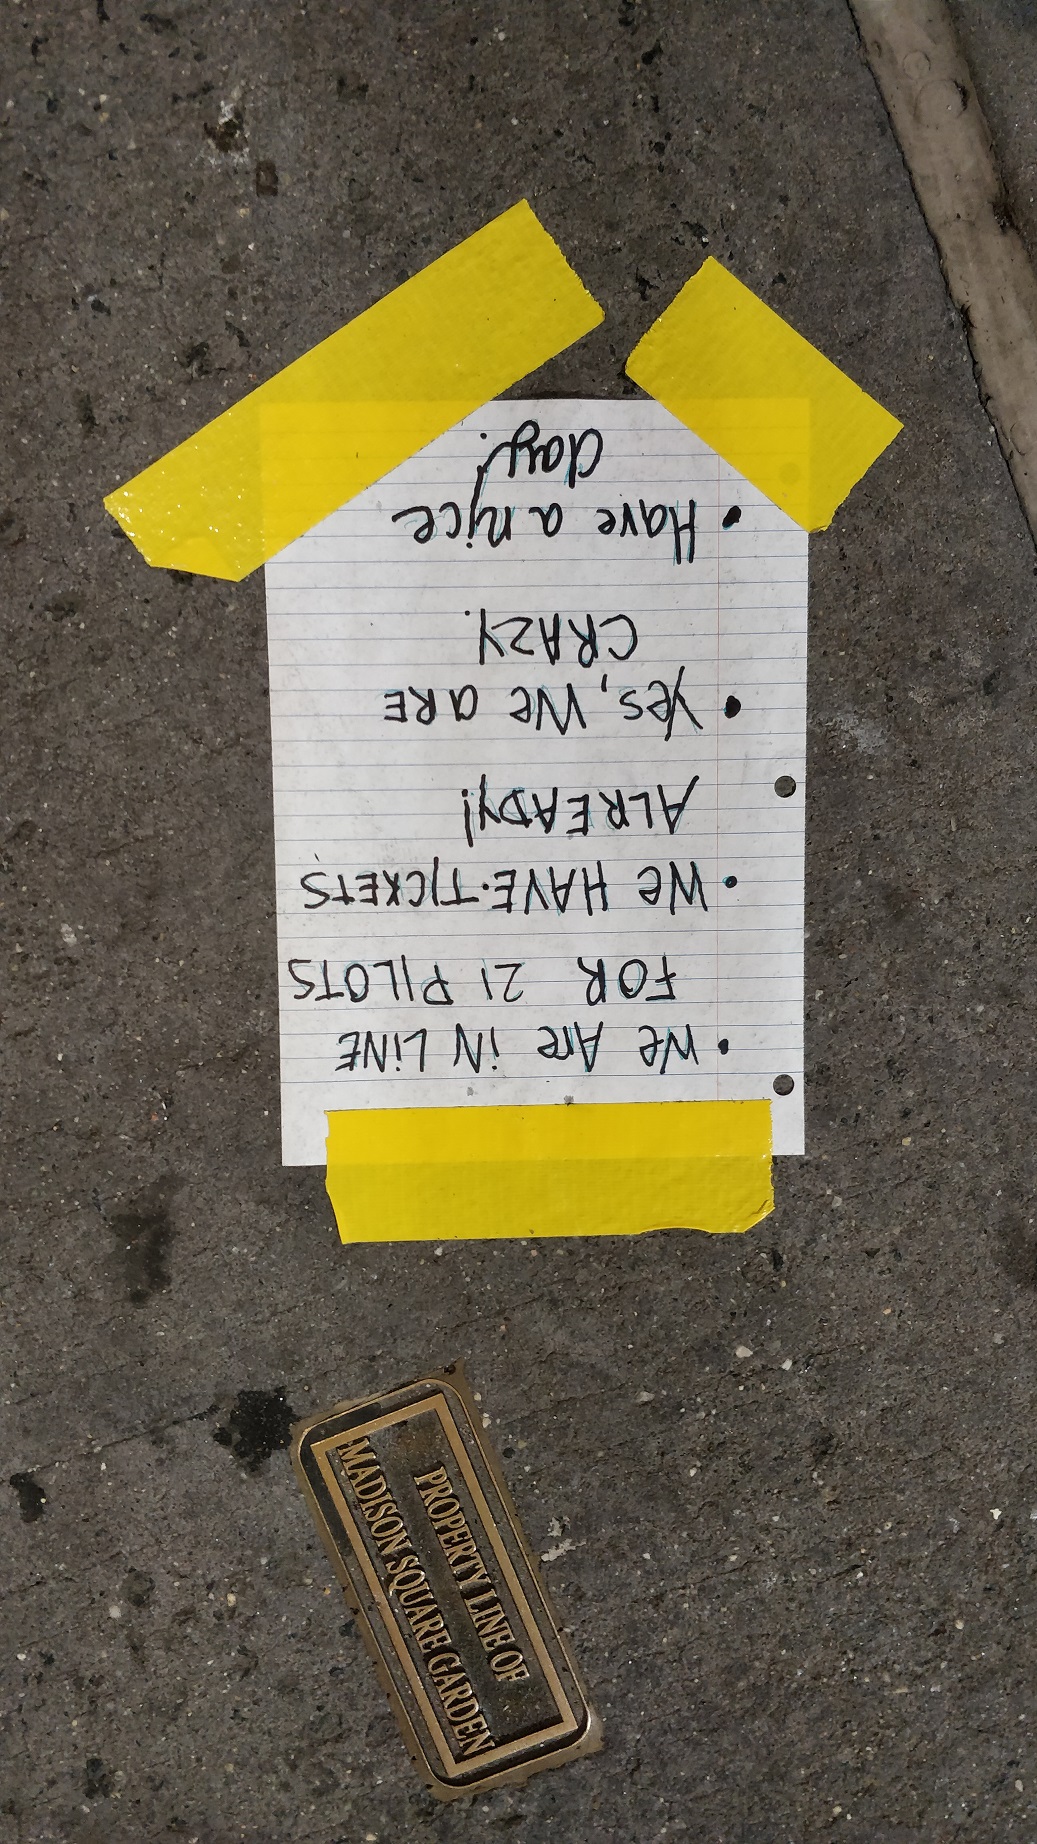 • We Are iN LiNE
FOR 21 PILOTS
• We HAVE TICKETS
ALREADY!
• Yes, We aRE
CRAZY.
• Have a nice
day!
PROPERTY LINE OF
MADISON SQUARE GARDEN